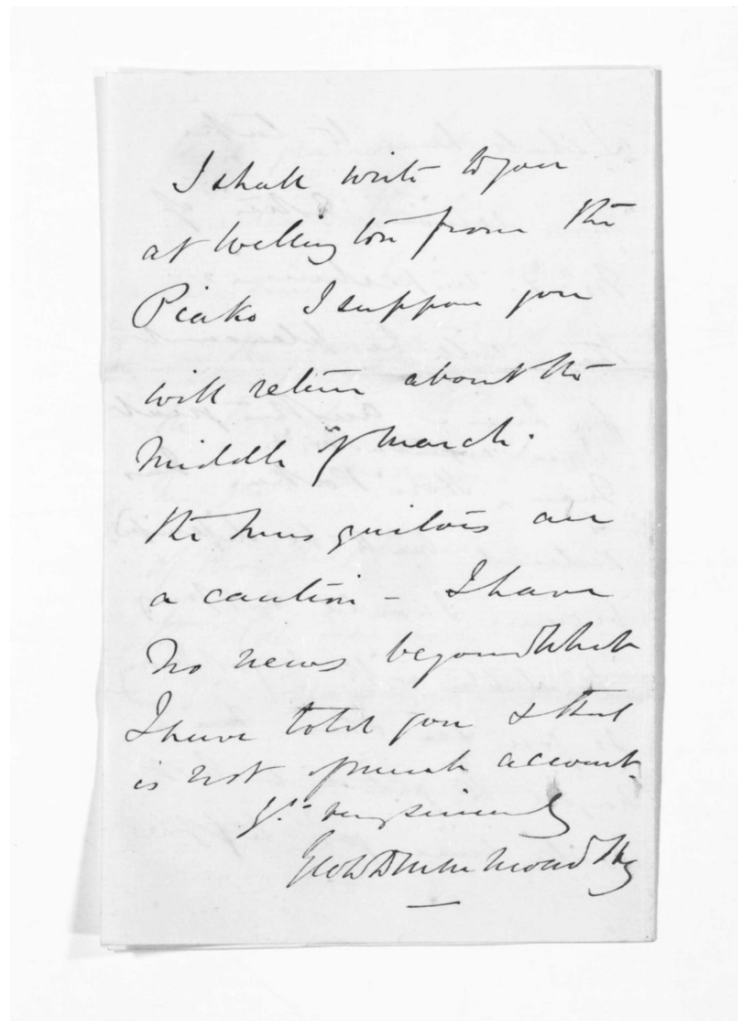 I shall write to you
at Wellington from the
Piako I suppose you
will return about the
Middle of March.
the musquitoes are
a caution - I have
no news beyond what
I have told you & that
is not of much account.
Yrs very sincerely
Geo W Drummond Hay